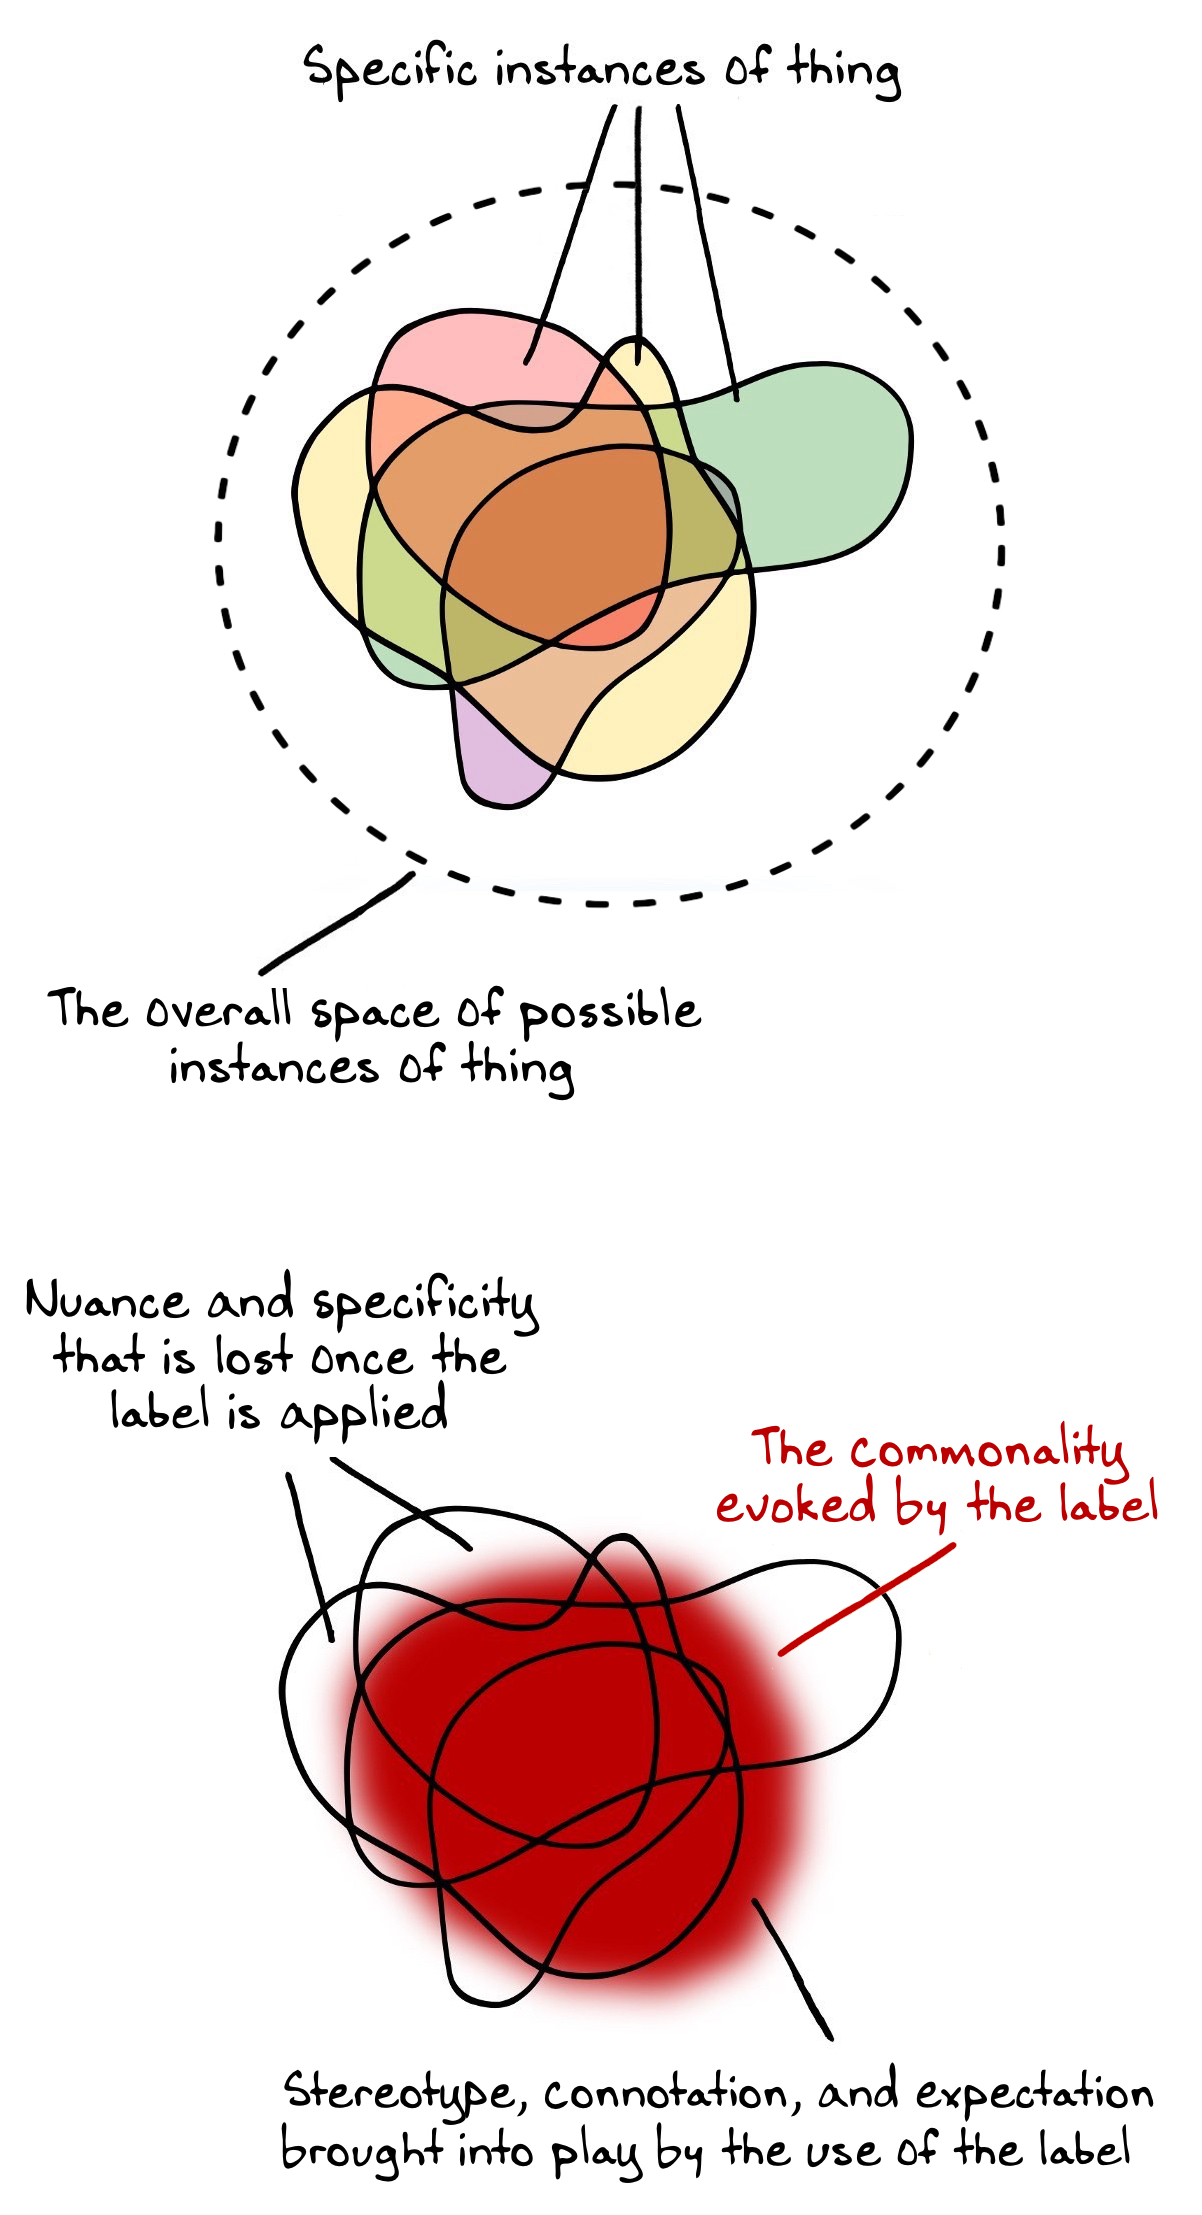 Specific instances of thing
The overall space of possible
instances of thing
Nuance and specificity
that is lost once the
label is applied
The commonality
evoked by the label
Stereotype, connotation, and expectation
brought into play by the use of the label